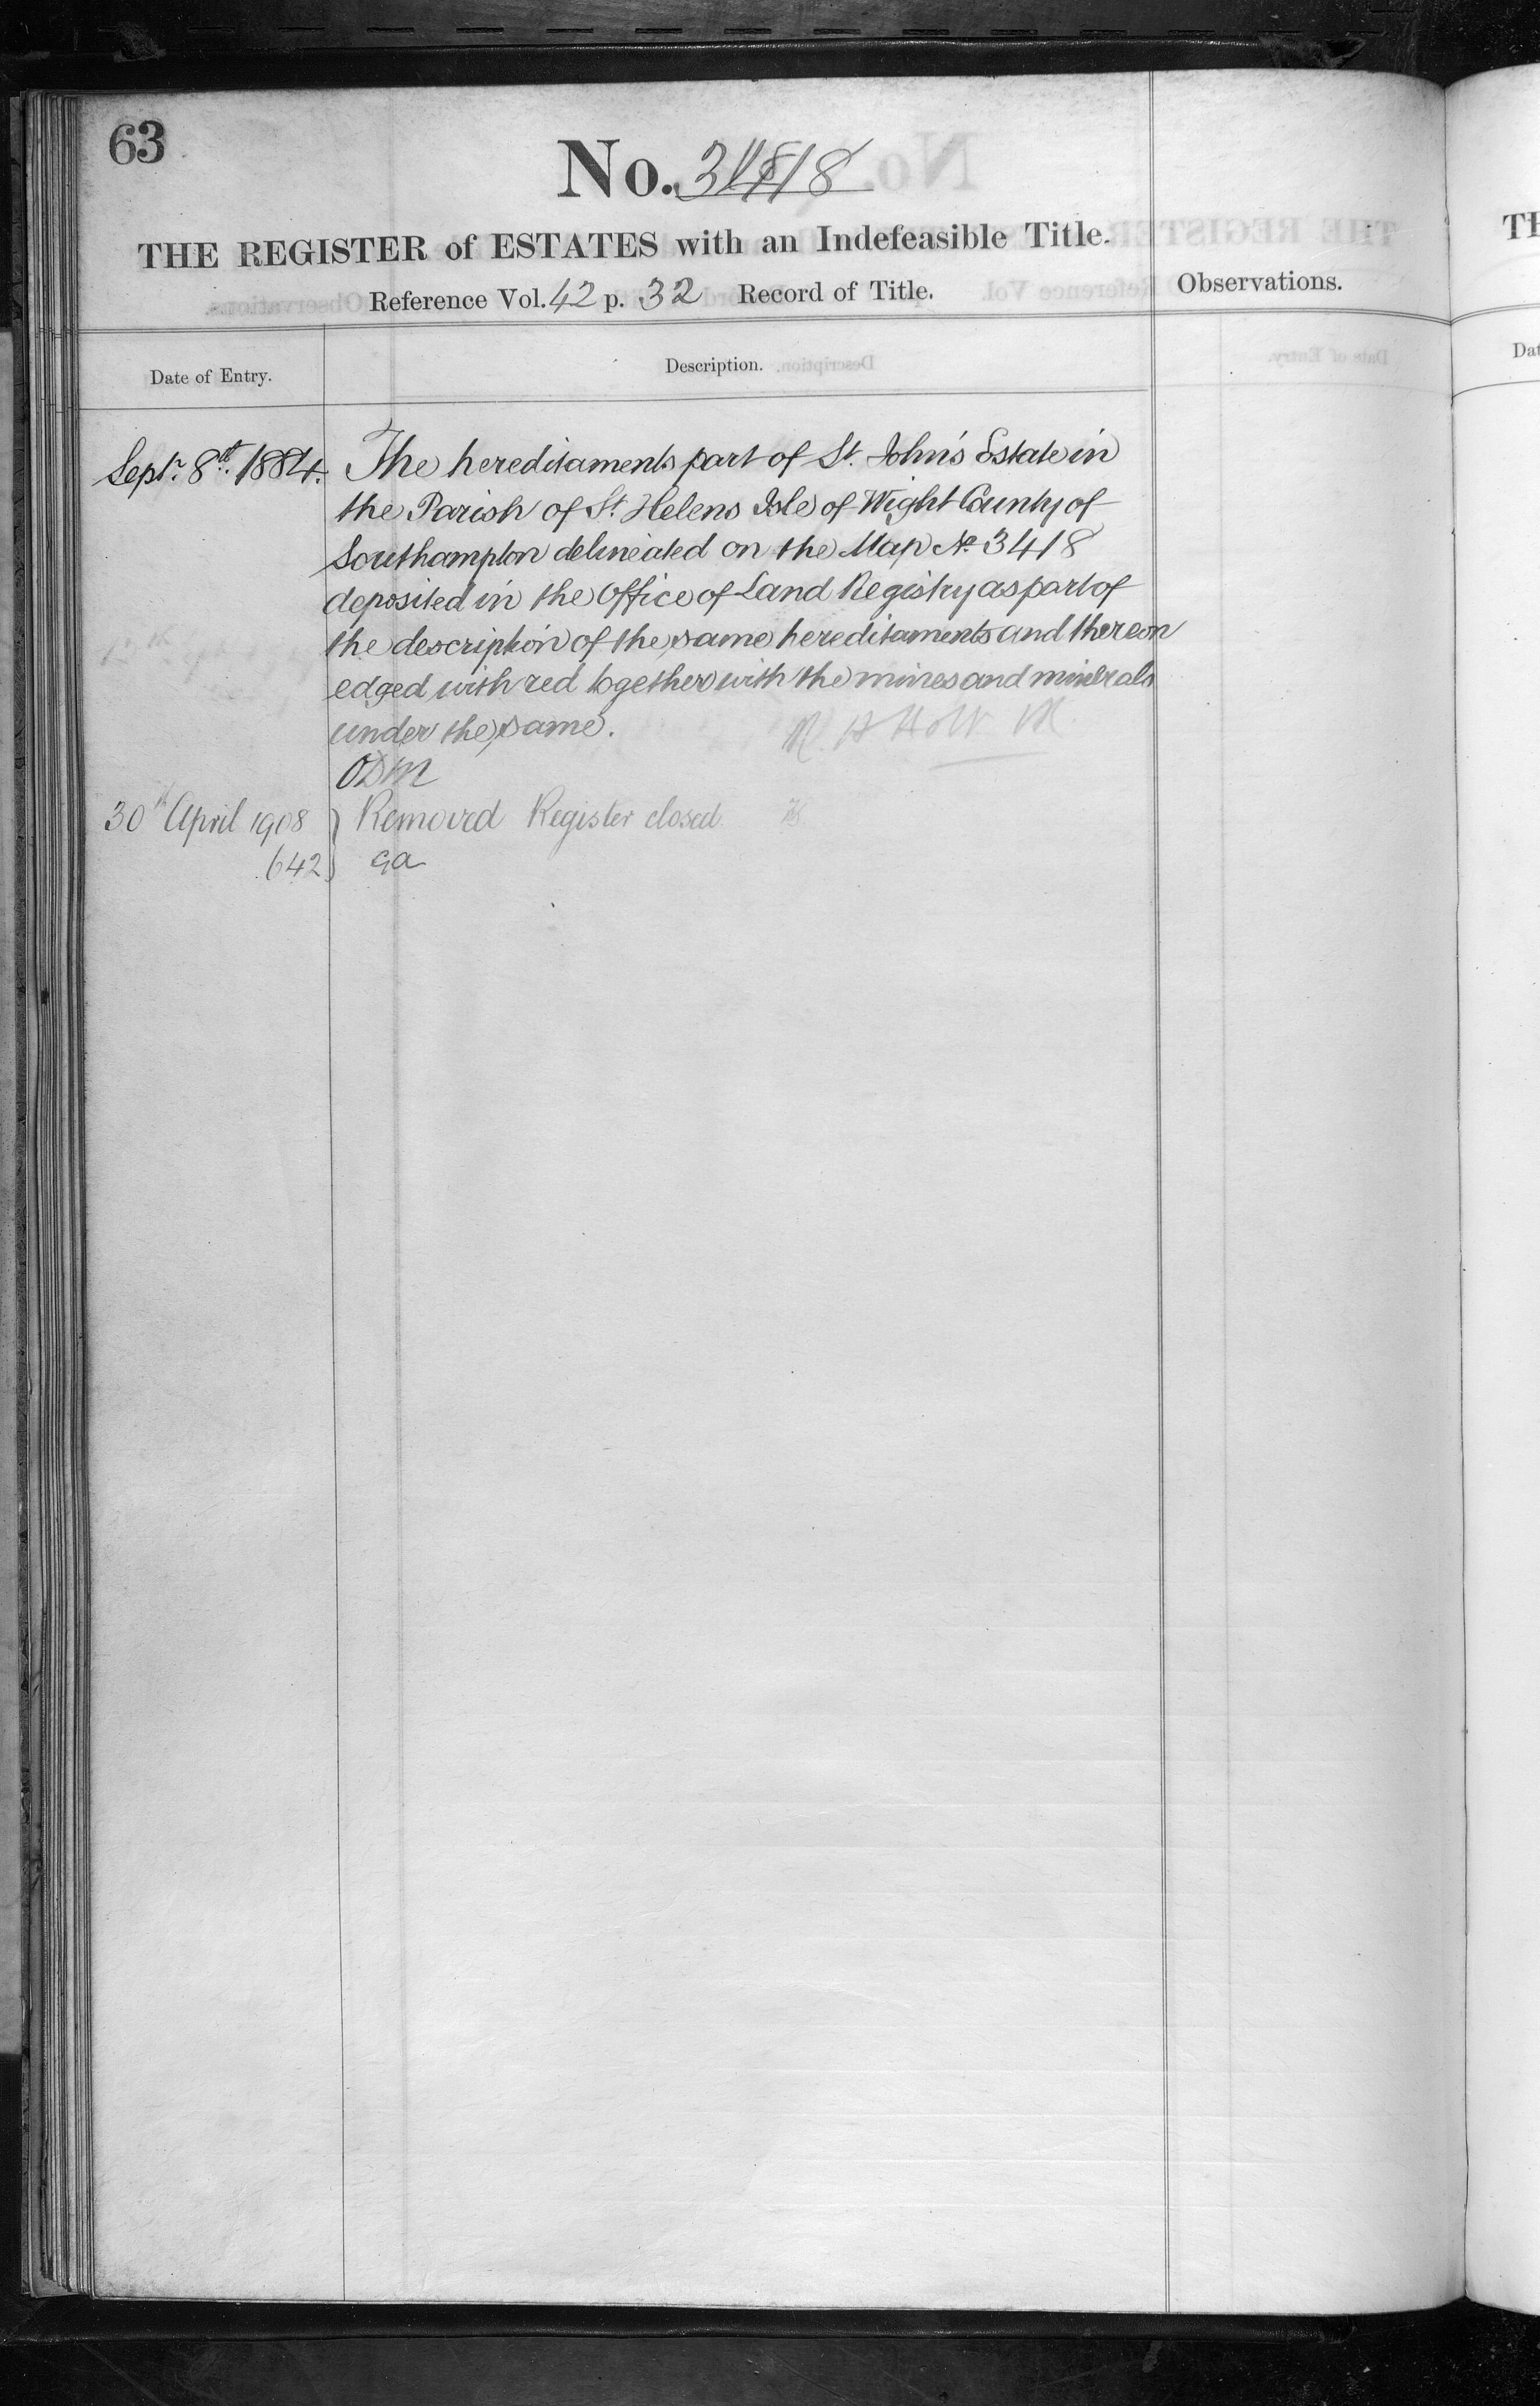 63
No. 3418
THE REGISTER of ESTATES with an Indefeasible Title.
Reference Vol. 42 p. 32 Record of Title.
Observations.
Date of Entry.
Description.
Sept.r 8th. 1884.
The hereditaments part of St. John's Estate in
the Parish of St. Helens Isle of Wight County of
Southampton delineated on the Map No 3418
deposited in the Office of Land Registry as part of
the description of the same hereditaments and thereon
edged with red together with the mines and minerals
under the same.
30th April 1908
Removed Register closed
642
TH
Dat